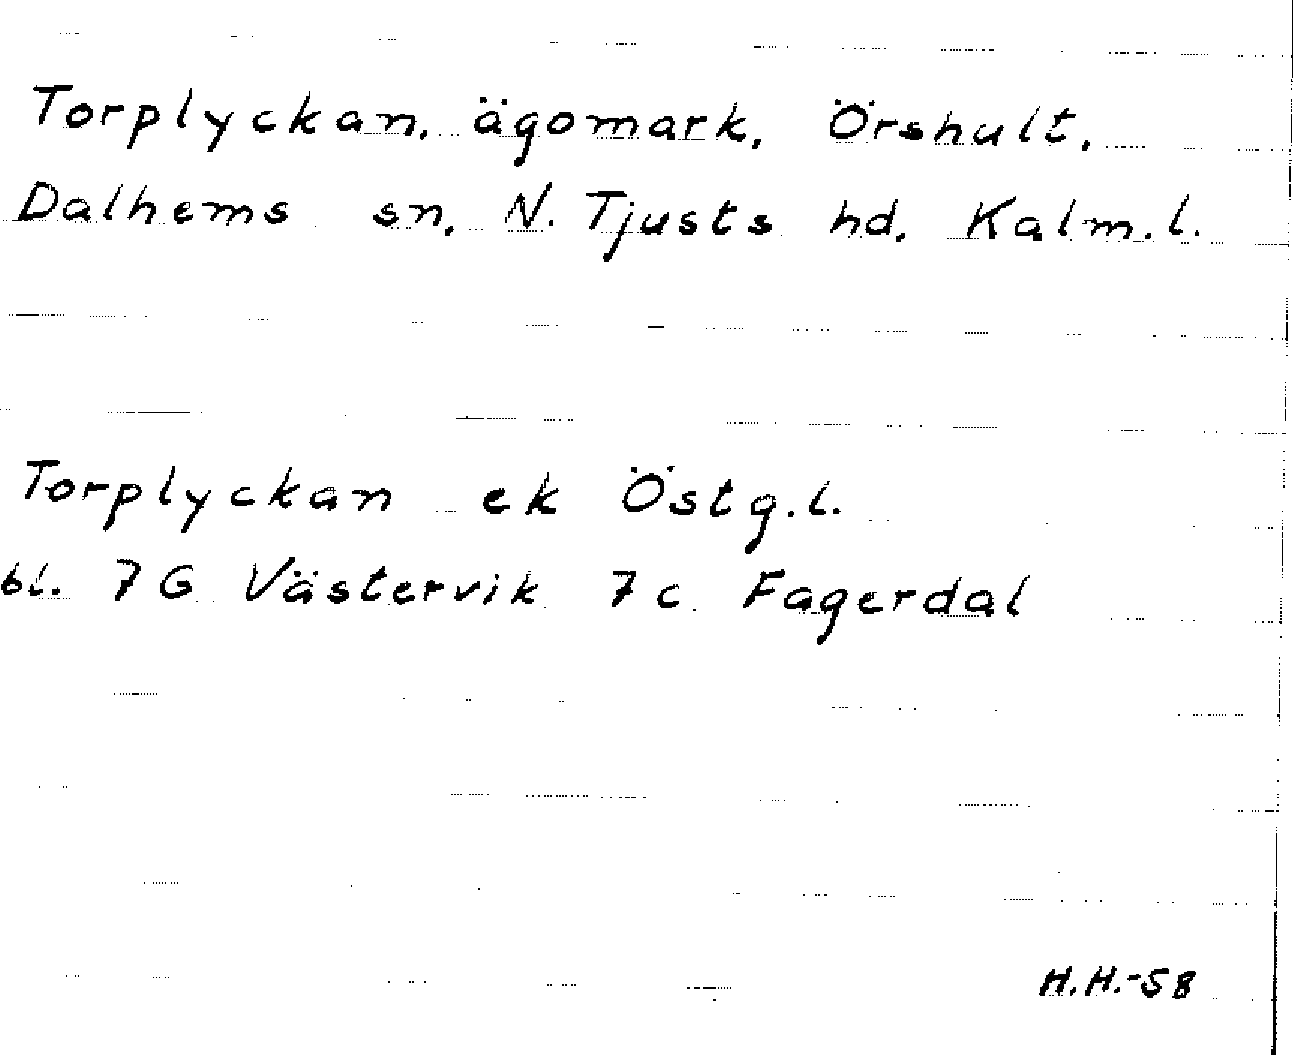 Torplyckan, ägomark, Örshult,
Dalhems sn, N. Tjusts hd, Kalm.l.
Torplyckan ek Östg.l.
bl. 7G Västervik 7c Fagerdal
H.H.-58